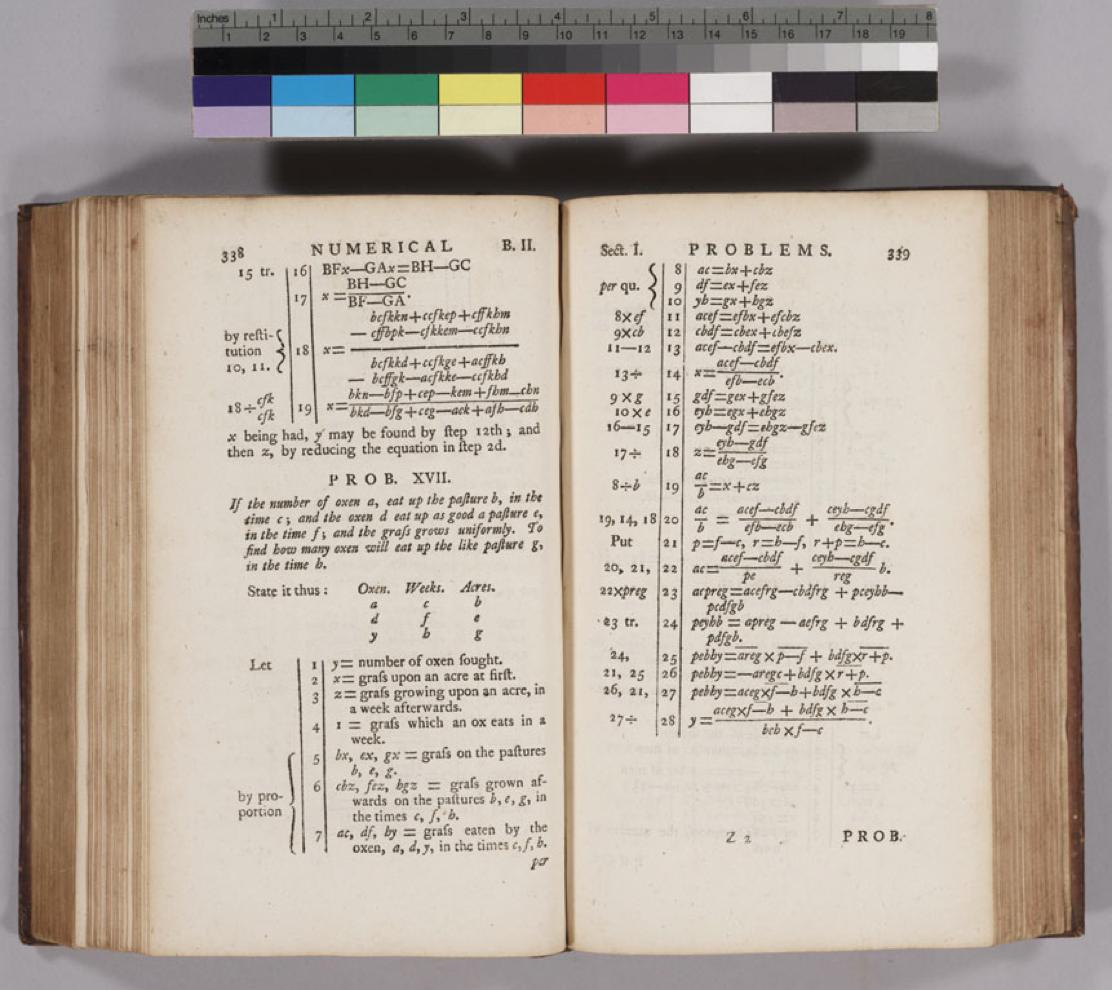 Inches 1 2 3 4 5 6 7 8
1 2 3 4 5 6 7 8 9 10 11 12 13 14 15 16 17 18 19
338 NUMERICAL B. II.
15 tr. 16 BFx—GAx=BH—GC
17 x=BH—GC/BF—GA.
bcfkkn+ccfkep+cffkhm
by reſti- — cffbpk—cfkkem—ccfkhn
tution 18 x=
10, 11. bcfkkd+ccfkge+acffkh
— bcffgk—acfkke—ccfkhd
bkn—bfp+cep—kem+fhm—chn
18÷cfk/cfk 19 x=bkd—bfg+ceg—aek+afh—cdh
x being had, y may be found by ſtep 12th; and
then z, by reducing the equation in ſtep 2d.
PROB. XVII.
If the number of oxen a, eat up the paſture b, in the
time c; and the oxen d eat up as good a paſture e,
in the time f; and the graſs grows uniformly. To
find how many oxen will eat up the like paſture g,
in the time h.
State it thus: Oxen. Weeks. Acres.
a c b
d f e
y h g
Let 1 y= number of oxen ſought.
2 x= graſs upon an acre at firſt.
3 z= graſs growing upon an acre, in
a week afterwards.
4 1 = graſs which an ox eats in a
week.
5 bx, ex, gx = graſs on the paſtures
b, e, g.
by pro- 6 cbz, fez, hgz = graſs grown af-
portion wards on the paſtures b, e, g, in
the times c, f, h.
7 ac, df, hy = graſs eaten by the
oxen, a, d, y, in the times c, f, h.
per
Sect. I. PROBLEMS. 339
8 ac=bx+cbz
per qu. 9 df=ex+fez
10 yh=gx+hgz
8×ef 11 acef=efbx+efcbz
9×cb 12 cbdf=cbex+cbefz
11—12 13 acef—cbdf=efbx—cbex.
13÷ 14 x=acef—cbdf/efb—ecb.
9×g 15 gdf=gex+gfez
10×e 16 eyh=egx+ehgz
16—15 17 eyh—gdf=ehgz—gfez
17÷ 18 z=eyh—gdf/ehg—efg
8÷b 19 ac/b=x+cz
19, 14, 18 20 ac/b = acef—cbdf/efb—ecb + ceyh—cgdf/ehg—efg.
Put 21 p=f—c, r=h—f, r+p=h—c.
20, 21, 22 ac=acef—cbdf/pe + ceyh—cgdf/reg b.
22×preg 23 acpreg=acefrg—cbdfrg + pceyhb—
pcdfgb
23 tr. 24 peyhb = apreg — aefrg + bdfrg +
pdfgb.
24, 25 pehby=areg × p—f + bdfg×r+p.
21, 25 26 pehby=—aregc+bdfg × r+p.
26, 21, 27 pehby=aceg×f—h+bdfg ×h—c
27÷ 28 y=aceg×f—h + bdfg × h—c/beh ×f—c.
Z 2 PROB.